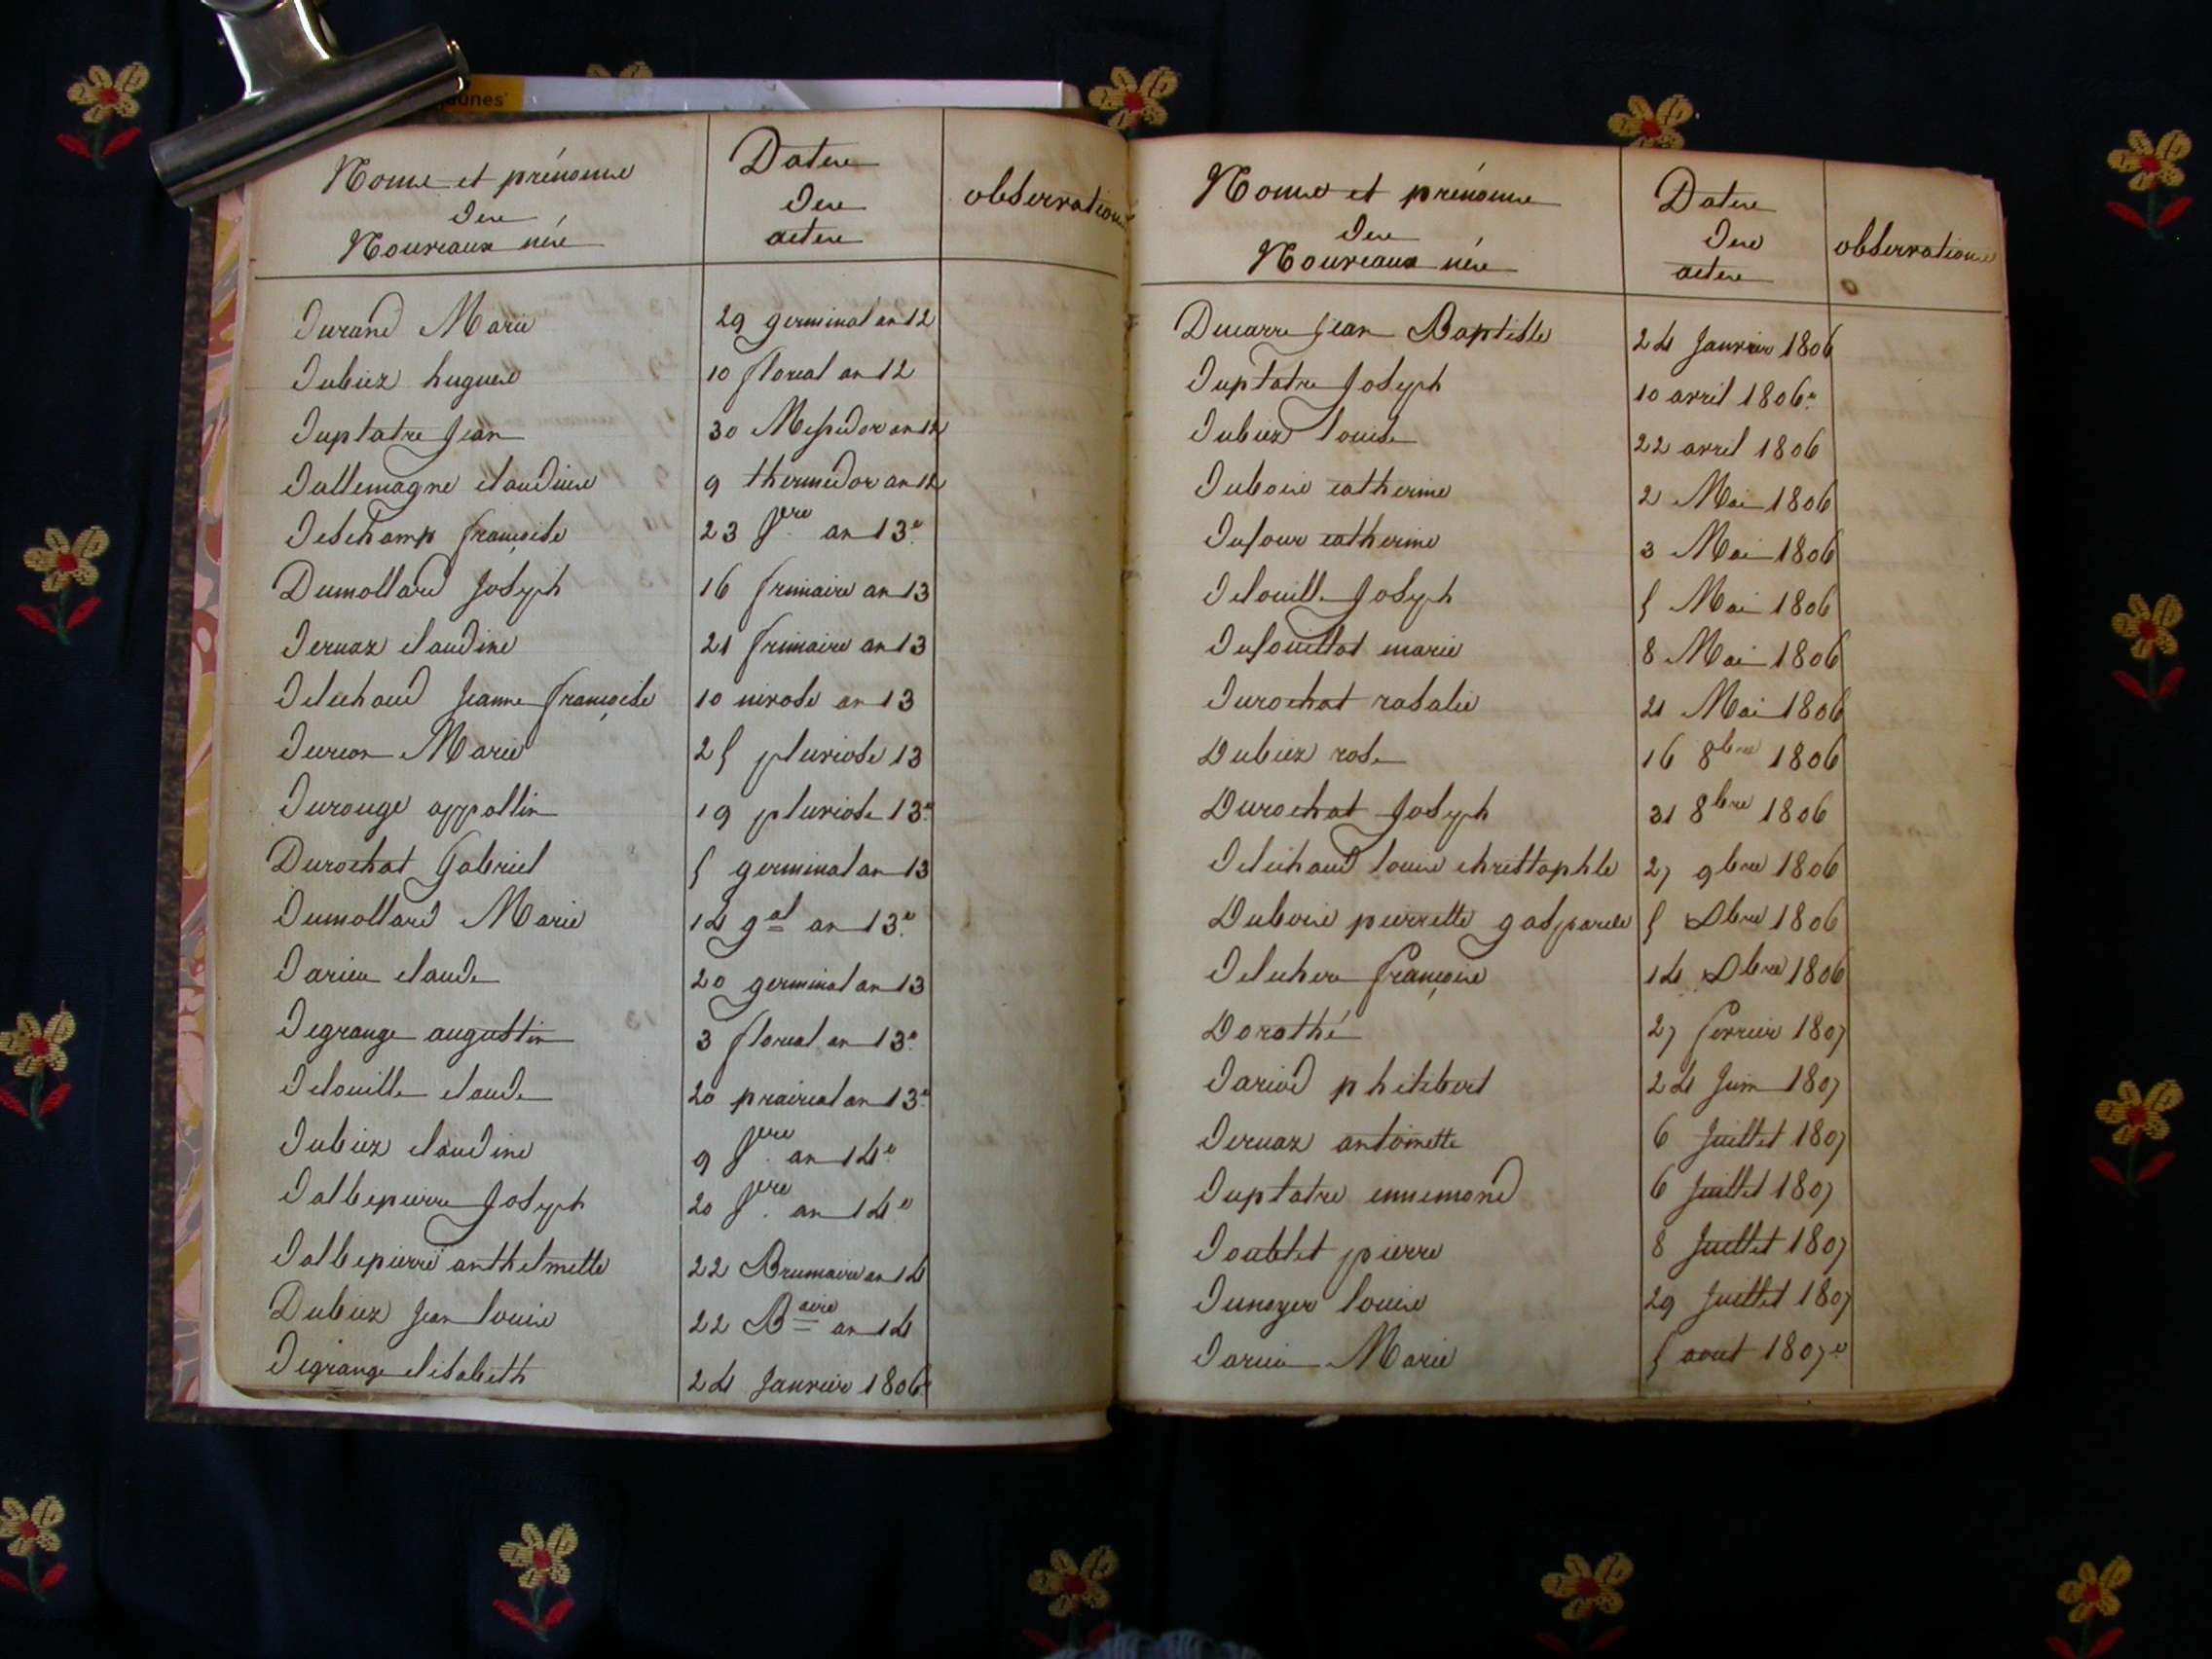 aunes'
Noms et prénoms
des
Nouveaux nés
Dates
des
actes
observations
Durand Marie 29 germinal an 12
Dubiez hugues 10 floreal an 12
Duplatre Jean 30 Messidor an 12
Dallemagne claudine 9 thermidor an 12
Deschamp françoise 23 f.re an 13.e
Dumollard Joseph 16 frimaire an 13
Dervaz claudine 21 frimaire an 13
Deléchaud Jeanne françoise 10 nivose an 13
Marie 25 pluviose 13
Durouge appollin 19 pluviose 13.e
Durochat Gabriel 5 germinal an 13
Dumollard Marie 14 g.al an 13.e
Darieu claude 20 germinal an 13
Degrange augustin 3 floreal an 13.e
Delouille claude 20 prairial an 13.e
Dubiez claudine 9 an 14.e
Dalbepierre Joseph 20 an 14.e
Dalbepierre anthelmette 22 Brumaire an 14
Dubiez Jean louis 22 B.aire an 14
Degrange elisabeth 24 Janvier 1806
Noms et prénoms
des
Nouveaux nés
Dates
des
actes
observations
Ducarre Jean Baptiste 24 Janvier 1806
Duplatre Joseph 10 avril 1806.e
Dubiez louise 22 avril 1806
Dubois catherine 2 Mai 1806
Dufour catherine 3 Mai 1806
Delouille Joseph 5 Mai 1806
Dufouillat marie 8 Mai 1806
Durochat rosalie 21 Mai 1806
Dubiez rose 16 8bre 1806
Durochat Joseph 31 8bre 1806
Deléchaud louis christophle 27 9bre 1806
Dubois pierrette gasparde 5 Dbre 1806
françois 14 Dbre 1806
Dorothé 27 fevrier 1807
Dariod philibert 24 Juin 1807
Dervaz antoinette 6 Juillet 1807
Duplatre ennemond 6 Juillet 1807
Doublet pierre 8 Juillet 1807
Dunoyer louis 29 Juillet 1807
Marie 5 aout 1807.e